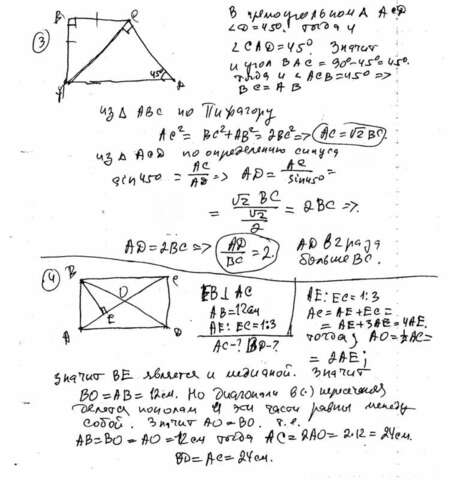 ③
B C
A D
45°
В прямоугольном Δ ACD
∠D=45°. тогда и
∠CAD=45°. Значит
и угол BAC = 90°-45°=45°.
тогда и ∠ACB=45° =>
BC = AB
из Δ ABC по Пифагору
AC² = BC²+AB² = 2BC² => AC=√2 BC.
из Δ ACD по определению синуса
sin45° = AC/AD => AD = AC/sin45° =
= √2 BC / (√2/2) = 2BC =>.
AD=2BC => AD/BC = 2. AD в 2 раза
больше BC.
④
B C
O
E
A D
EB⊥AC
AB=12см
AE:EC=1:3
AC-? BD-?
AE:EC=1:3
AC = AE+EC =
= AE+3AE=4AE.
тогда, AO=½AC=
= 2AE;
Значит BE является и медианой. Значит
BO=AB=12см. Но диагонали в (·) пересечения
делятся пополам и эти части равны между
собой. Значит AO=BO. т.е.
AB=BO=AO=12см тогда AC=2AO=2·12=24см.
BD=AC=24см.